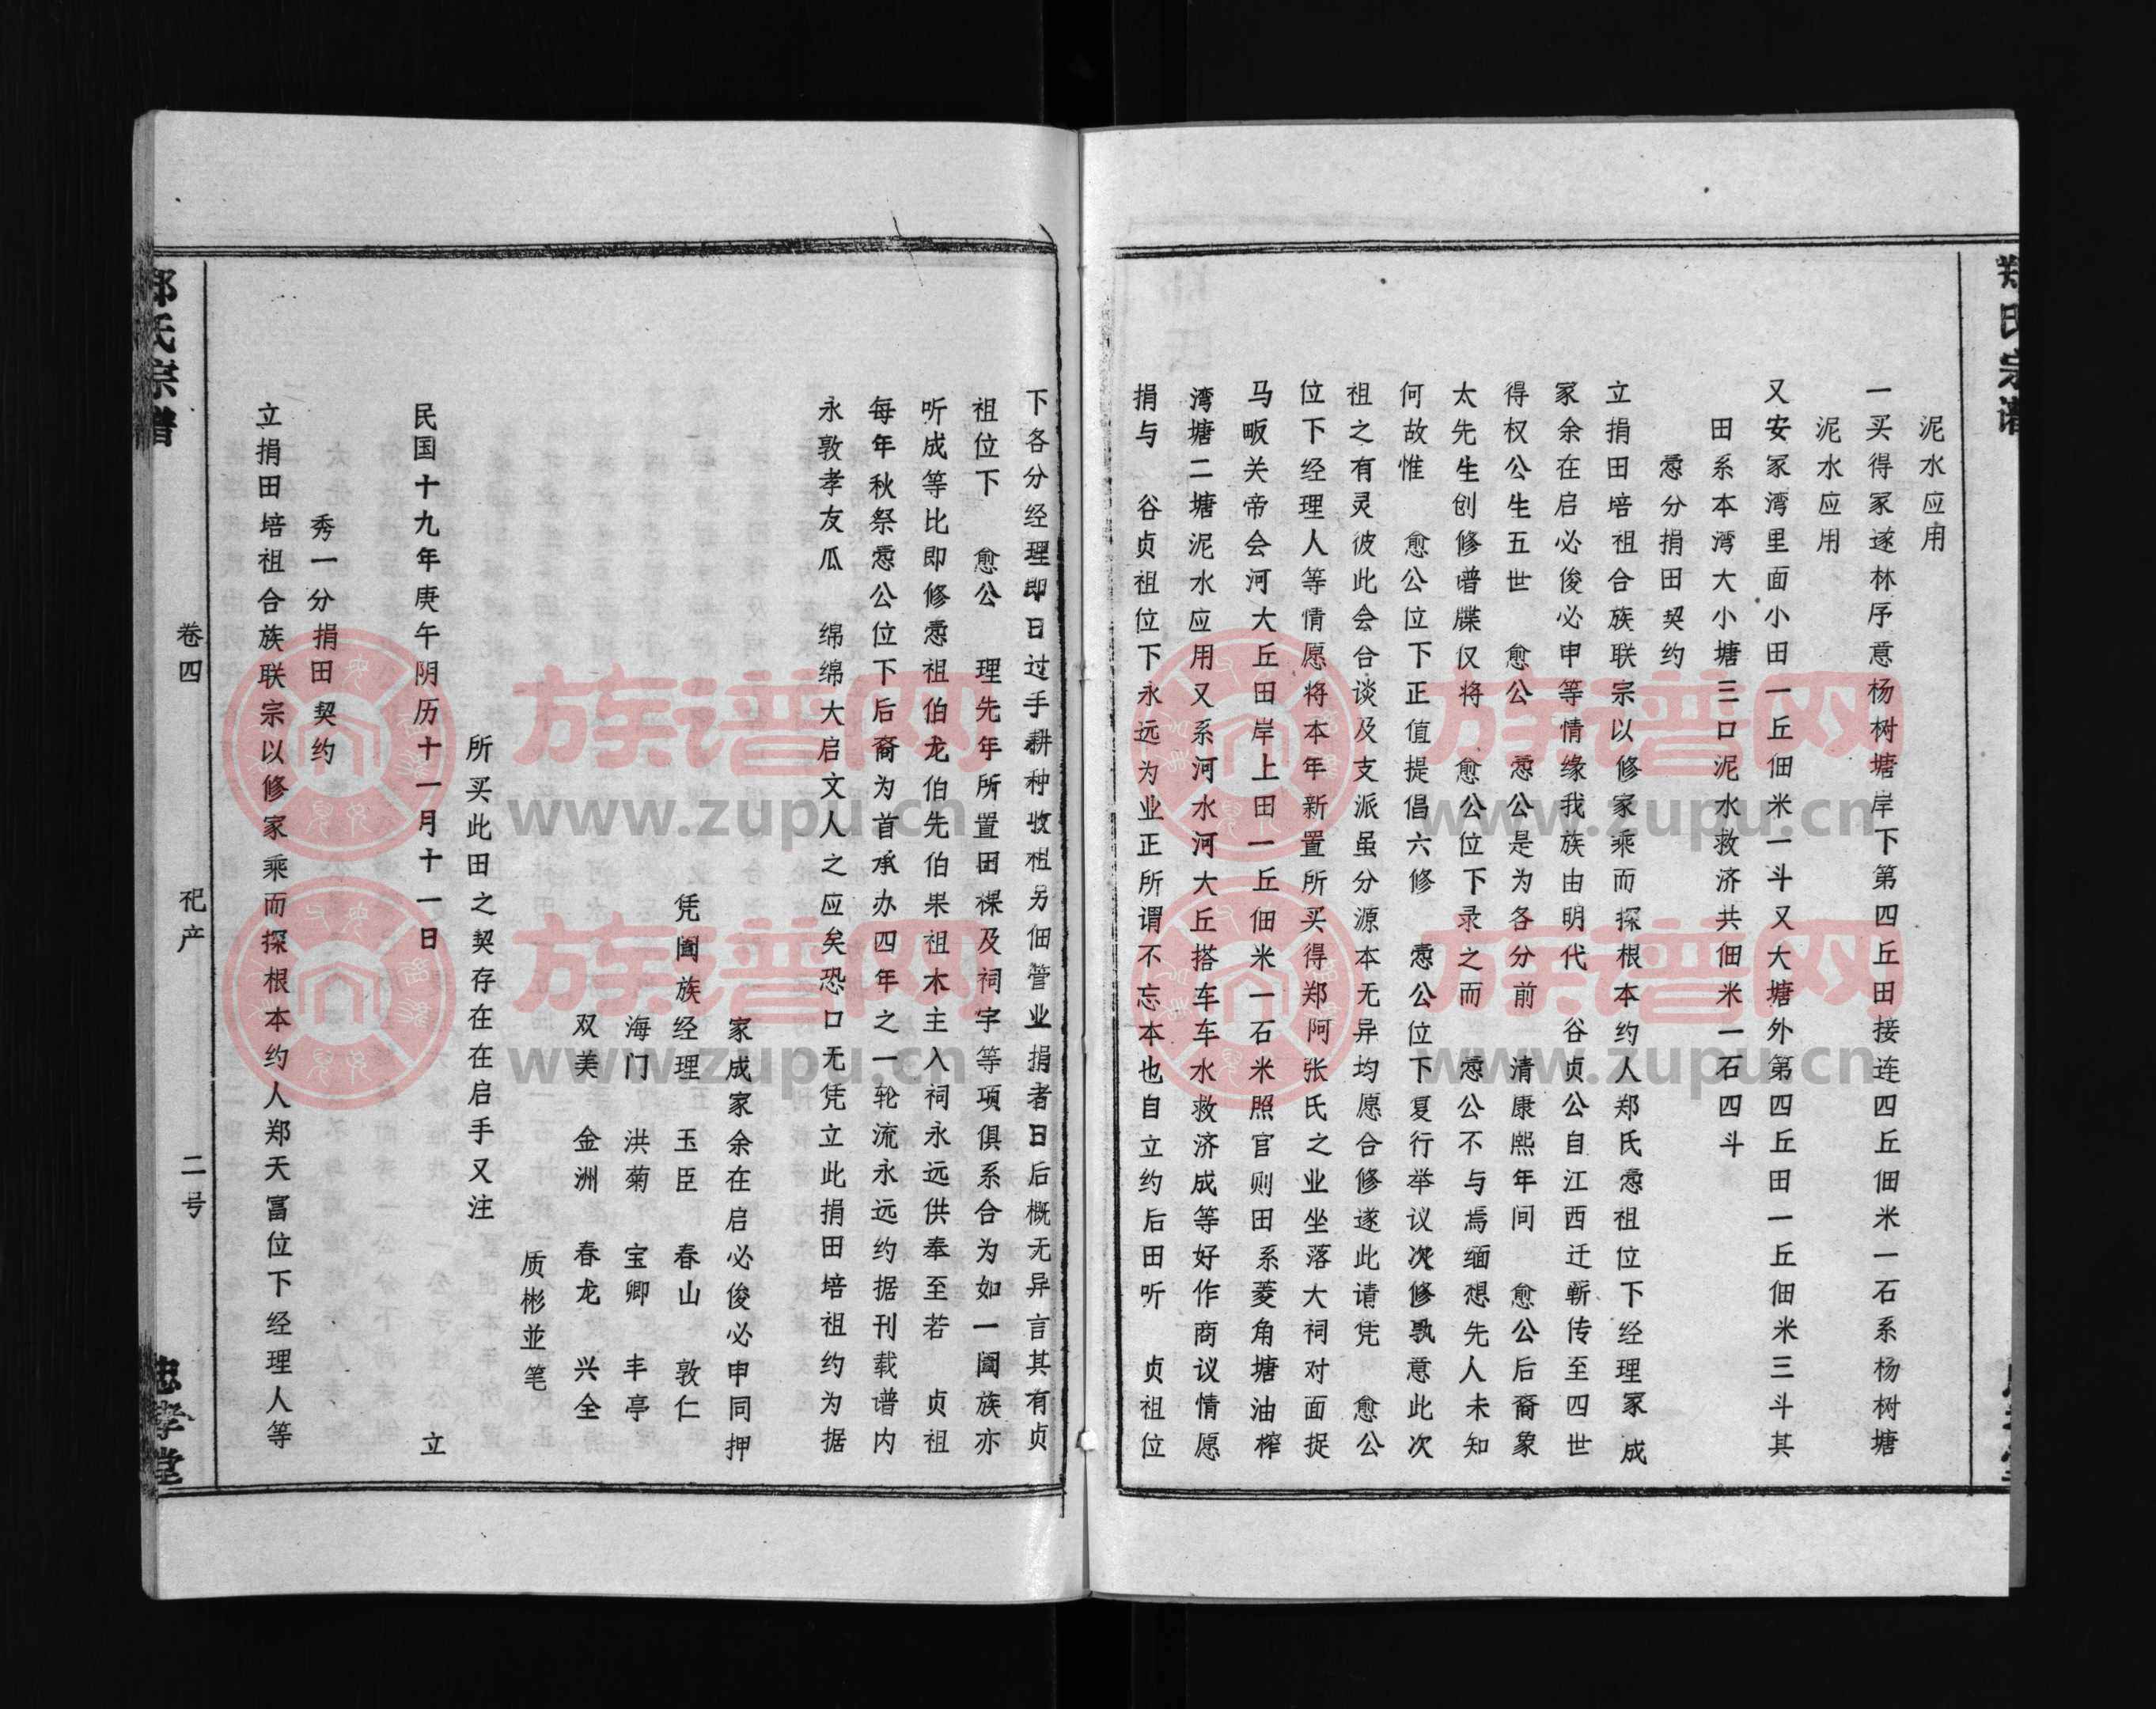 郑氏宗谱
泥水应用
一买得冢遂林序意杨树塘岸下第四丘田接连四丘佃米一石系杨树塘
泥水应用
又安冢湾里面小田一丘佃米一斗又大塘外第四丘田一丘佃米三斗其
田系本湾大小塘三口泥水救济共佃米一石四斗
悫分捐田契约
立捐田培祖合族联宗以修家乘而探根本约人郑氏悫祖位下经理冢成
冢余在启必俊必申等情缘我族由明代 谷贞公自江西迁蕲传至四世
得权公生五世 愈公 悫公是为各分前 清康熙年间 愈公后裔象
太先生创修谱牒仅将 愈公位下录之而 悫公不与焉缅想先人未知
何故惟 愈公位下正值提倡六修 悫公位下复行举议次修孰意此次
祖之有灵彼此会合谈及支派虽分源本无异均愿合修遂此请凭 愈公
位下经理人等情愿将本年新置所买得郑阿张氏之业坐落大祠对面捉
马畈关帝会河大丘田岸上田一丘佃米一石米照官则田系菱角塘油榨
湾塘二塘泥水应用又系河水河大丘搭车车水救济成等好作商议情愿
捐与 谷贞祖位下永远为业正所谓不忘本也自立约后田听 贞祖位
下各分经理即日过手耕种收租另佃管业捐者日后概无异言其有贞
祖位下 愈公 理先年所置田稞及祠宇等项俱系合为如一阖族亦
听成等比即修悫祖伯龙伯先伯果祖木主入祠永远供奉至若 贞祖
每年秋祭悫公位下后裔为首承办四年之一轮流永远约据刊载谱内
永敦孝友瓜 绵绵大启文人之应矣恐口无凭立此捐田培祖约为据
冢成冢余在启必俊必申同押
凭阖族经理 玉臣 春山 敦仁
海门 洪菊 宝卿 丰亭
双美 金洲 春龙 兴全
质彬並笔
所买此田之契存在在启手又注
民国十九年庚午阴历十一月十一日 立
秀一分捐田契约
立捐田培祖合族联宗以修家乘而探根本约人郑天富位下经理人等
卷四 祀产 二号
氏宗谱
忠孝堂
族谱网
www.zupu.cn
族谱网
www.zupu.cn
族谱网
www.zupu.cn
族谱网
www.zupu.cn